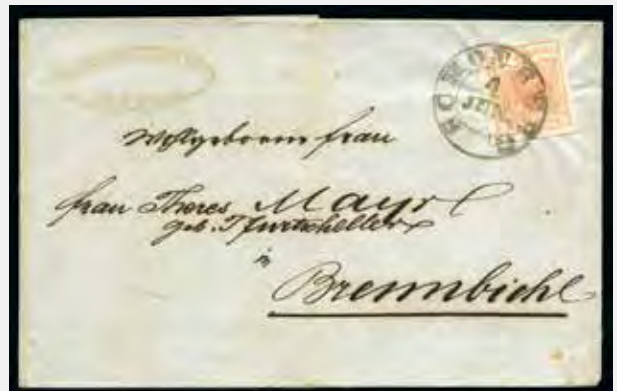 4
JUN
Wohlgeborne Frau
Frau Theres Mayr
geb. Pfurtscheller
in
Brennbichl